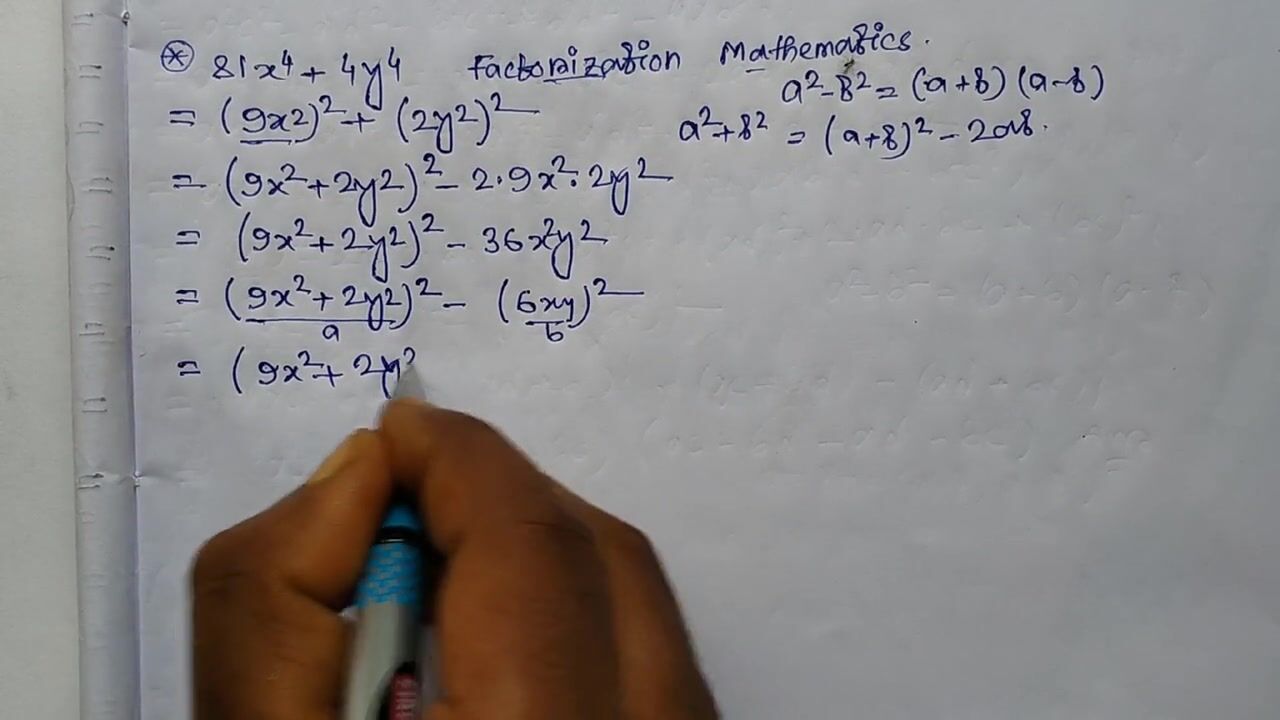 * 81x⁴ + 4y⁴ Factorization Mathematics.
a² - b² = (a+b) (a-b)
= (9x²)² + (2y²)² a² + b² = (a+b)² - 2ab.
= (9x² + 2y²)² - 2·9x²·2y²
= (9x² + 2y²)² - 36x²y²
= (9x² + 2y²)² - (6xy)²
a b
= (9x² + 2y²